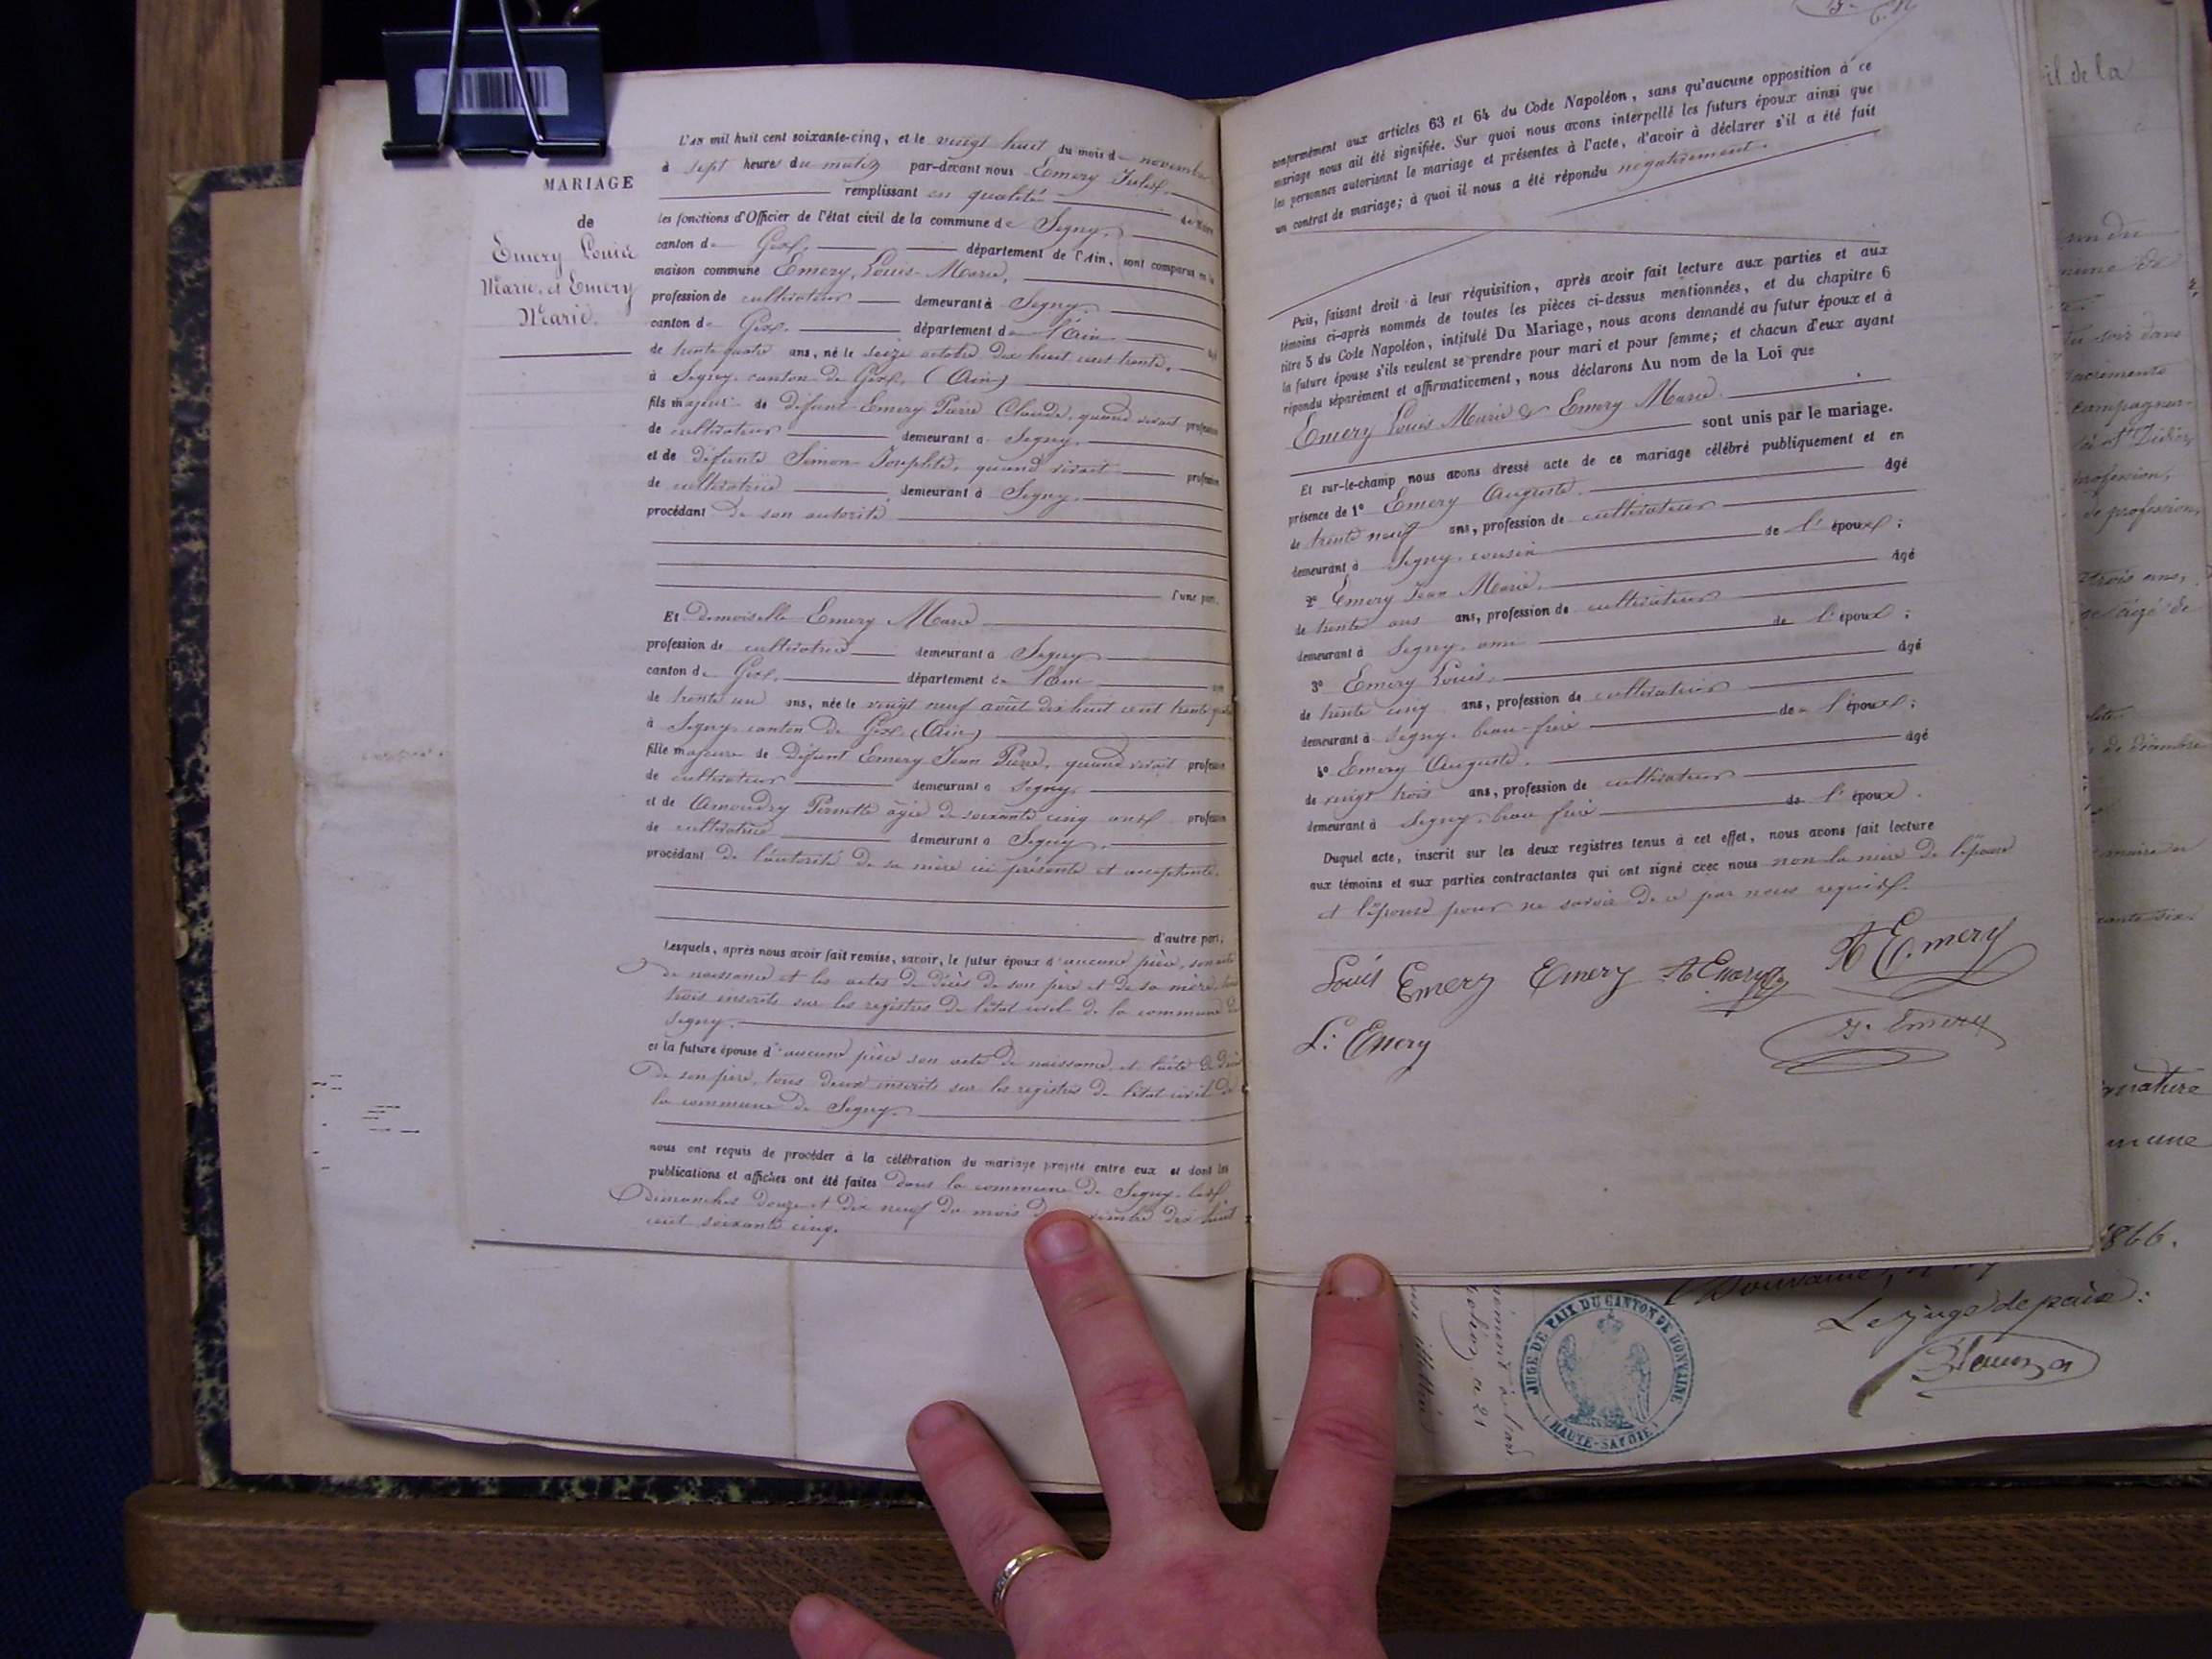 MARIAGE
de
Emery Louis
Marie, et Emery
Marie.
L'an mil huit cent soixante-cinq, et le vingt huit du mois de novembre
à sept heures du matin par-devant nous Emery Jules,
remplissant en qualité de Maire
les fonctions d'Officier de l'état civil de la commune de Segny,
canton de Gex, département de l'Ain, sont comparus en la
maison commune Emery, Louis-Marie,
profession de cultivateur demeurant à Segny,
canton de Gex. département de l'Ain
de trente quatre ans, né le seize octobre dix huit cent trente,
à Segny, canton de Gex, (Ain)
fils majeur de défunt Emery Pierre Claude, quand vivait profession
de cultivateur demeurant à Segny,
et de défunte Simon Josephte, quand vivait profession
de cultivatrice demeurant à Segny.
procédant de son autorité
d'une part.
Et Demoiselle Emery Marie
profession de cultivatrice demeurant à Segny
canton de Gex, département de l'Ain
de trente un ans, née le vingt neuf août dix huit cent trente quatre
à Segny, canton de Gex (Ain)
fille majeure de Défunt Emery Jean Pierre, quand vivait profession
de cultivateur demeurant à Segny,
et de Amoudry Pernette âgée de soixante cinq ans profession
de cultivatrice demeurant à Segny,
procédant de l'autorité de sa mère ici présente et acceptante.
d'autre part,
Lesquels, après nous avoir fait remise, savoir, le futur époux d'aucune pièce, son acte
de naissance et les actes de décès de son père et de sa mère, tous
trois inscrits sur les registres de l'état civil de la commune de
Segny.
et la future épouse d'aucune pièce son acte de naissance, et l'acte de décès
de son père, tous deux inscrits sur les registres de l'état civil de
la commune de Segny.
nous ont requis de procéder à la célébration du mariage projeté entre eux et dont les
publications et affiches ont été faites dans la commune de Segny les
Dimanches douze et dix neuf du mois de novembre dix huit
cent soixante cinq.
conformément aux articles 63 et 64 du Code Napoléon, sans qu'aucune opposition à ce
mariage nous ait été signifiée. Sur quoi nous avons interpellé les futurs époux ainsi que
les personnes autorisant le mariage et présentes à l'acte, d'avoir à déclarer s'il a été fait
un contrat de mariage; à quoi il nous a été répondu négativement.
Puis, faisant droit à leur réquisition, après avoir fait lecture aux parties et aux
témoins ci-après nommés de toutes les pièces ci-dessus mentionnées, et du chapitre 6
titre 5 du Code Napoléon, intitulé Du Mariage, nous avons demandé au futur époux et à
la future épouse s'ils veulent se prendre pour mari et pour femme; et chacun d'eux ayant
répondu séparément et affirmativement, nous déclarons Au nom de la Loi que
Emery Louis Marie & Emery Marie.
sont unis par le mariage.
Et sur-le-champ nous avons dressé acte de ce mariage célébré publiquement et en
présence de 1° Emery Auguste. âgé
de trente neuf ans, profession de cultivateur
demeurant à Segny, cousin de l'époux;
2° Emery Jean Marie, âgé
de trente ans ans, profession de cultivateur
demeurant à Segny, ami de l'époux;
3° Emery Louis, âgé
de trente cinq ans, profession de cultivateur
demeurant à Segny, beau-frère de l'époux;
4° Emery Auguste, âgé
de vingt trois ans, profession de cultivateur
demeurant à Segny, beau frère de l'époux.
Duquel acte, inscrit sur les deux registres tenus à cet effet, nous avons fait lecture
aux témoins et aux parties contractantes qui ont signé avec nous non la mère de l'épouse
et l'épouse pour ne savoir de ce par nous requis.
Louis Emery Emery A Emery A Emery
L. Emery J. Emery
il de la
campagnar
profession,
de profession,
trois ans,
de décembre
signature
mune
1866.
Le juge de paix:
JUGE DE PAIX DU CANTON DE DOUVAINE
(HAUTE-SAVOIE)